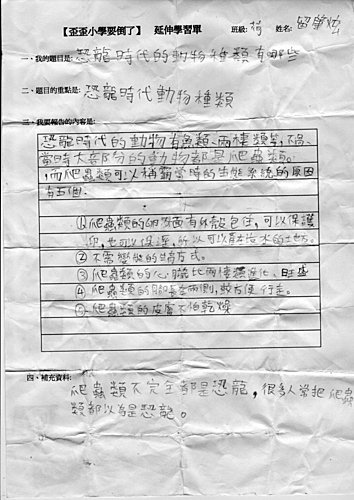 【歪歪小學要倒了】 延伸學習單 班級: 荷 姓名:
一、我的題目是: 恐龍時代的動物種類有哪些
二、題目的重點是: 恐龍時代動物種類
三、我要報告的內容是:
恐龍時代的動物有魚類、兩棲類等,不過
當時大部分的動物都是爬蟲類。
而爬蟲類可以稱霸當時的生態系統的原因
有五個.
①爬蟲類的卵外面有外殼包住,可以保護
卵,也可以保溼,所以可以產在沒水的地方。
② 不需變態的生 方式。
③ 爬蟲類的心臟比兩棲類進化、旺盛
④ 爬蟲類的腳長在兩側,較方便行走。
⑤ 爬蟲類的皮膚不怕乾燥
四、補充資料:
爬蟲類不完全都是恐龍,很多人常把爬蟲
類都以為是恐龍。